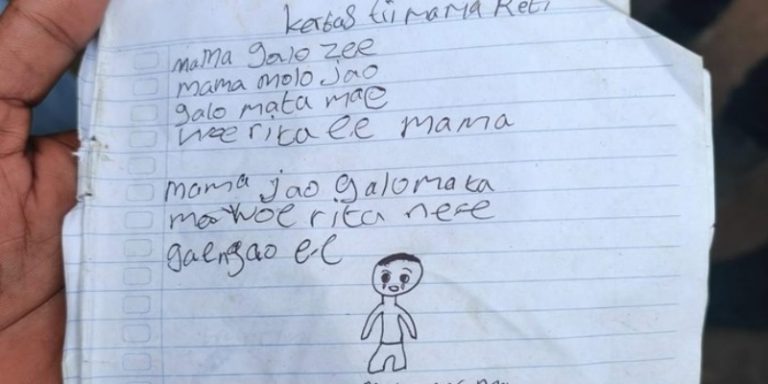 kertas tii mama Reti
mama galo zee
mama molo jao
galo mata mae
woe rita ee mama
mama jao galo mata
mae woe rita ne'e
gae ngao e-e